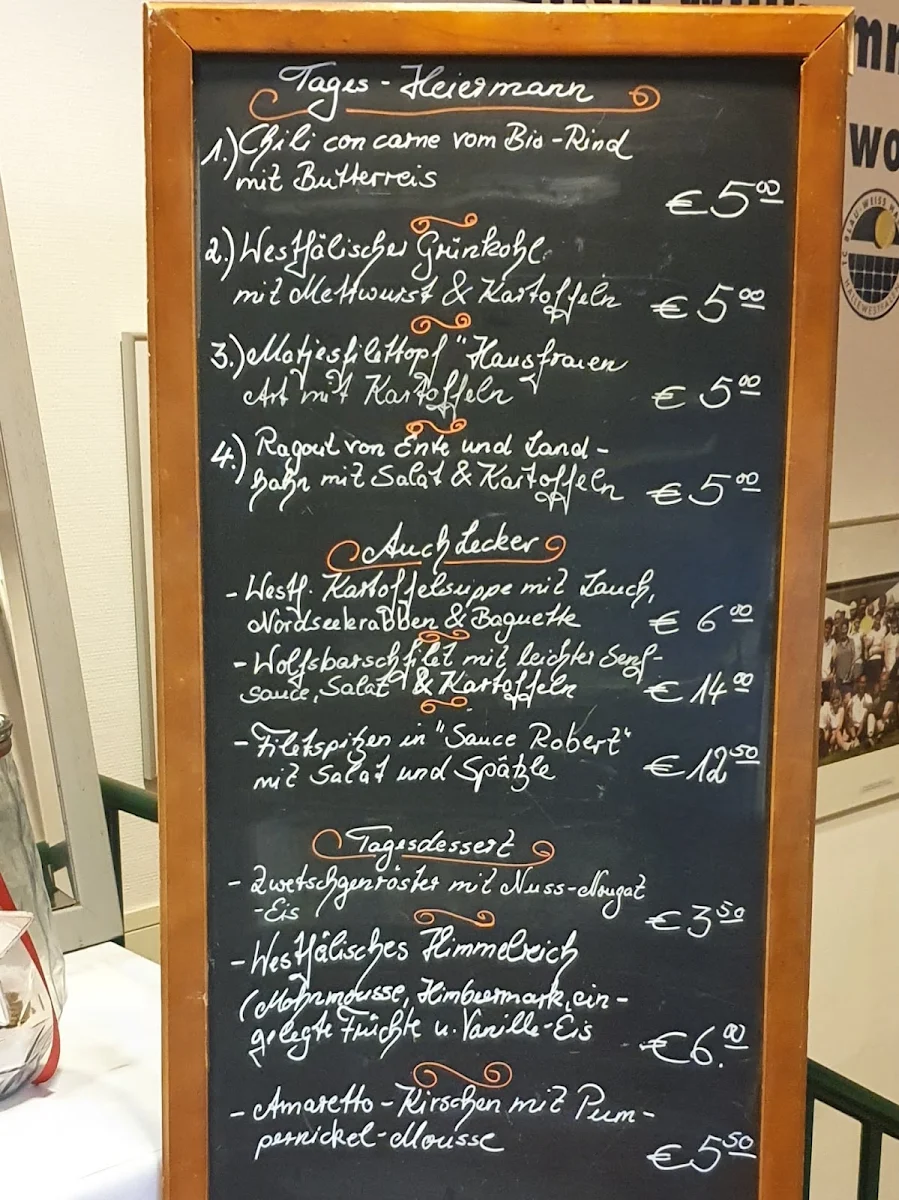 Tages - Heiermann
1.) Chili con carne vom Bio-Rind
mit Butterreis
€ 5.00
2.) Westfälischer Grünkohl
mit Mettwurst & Kartoffeln
€ 5.00
3.) Matjesfilettopf "Hausfrauen
Art mit Kartoffeln
€ 5.00
4.) Ragout von Ente und Land-
hahn mit Salat & Kartoffeln
€ 5.00
Auch Lecker
- Westf. Kartoffelsuppe mit Lauch,
Nordseekrabben & Baguette
€ 6.00
- Wolfsbarschfilet mit leichter Senf-
sauce, Salat & Kartoffeln
€ 14.00
- Filetspitzen in "Sauce Robert"
mit Salat und Spätzle
€ 12.50
Tagesdessert
- Zwetschgenröster mit Nuss-Nougat
-Eis
€ 3.50
- Westfälisches Himmelreich
(Mohnmousse, Himbeermark, ein-
gelegte Früchte u. Vanille-Eis
€ 6.00
- Amaretto-Kirschen mit Pum-
pernickel-Mousse
€ 5.50